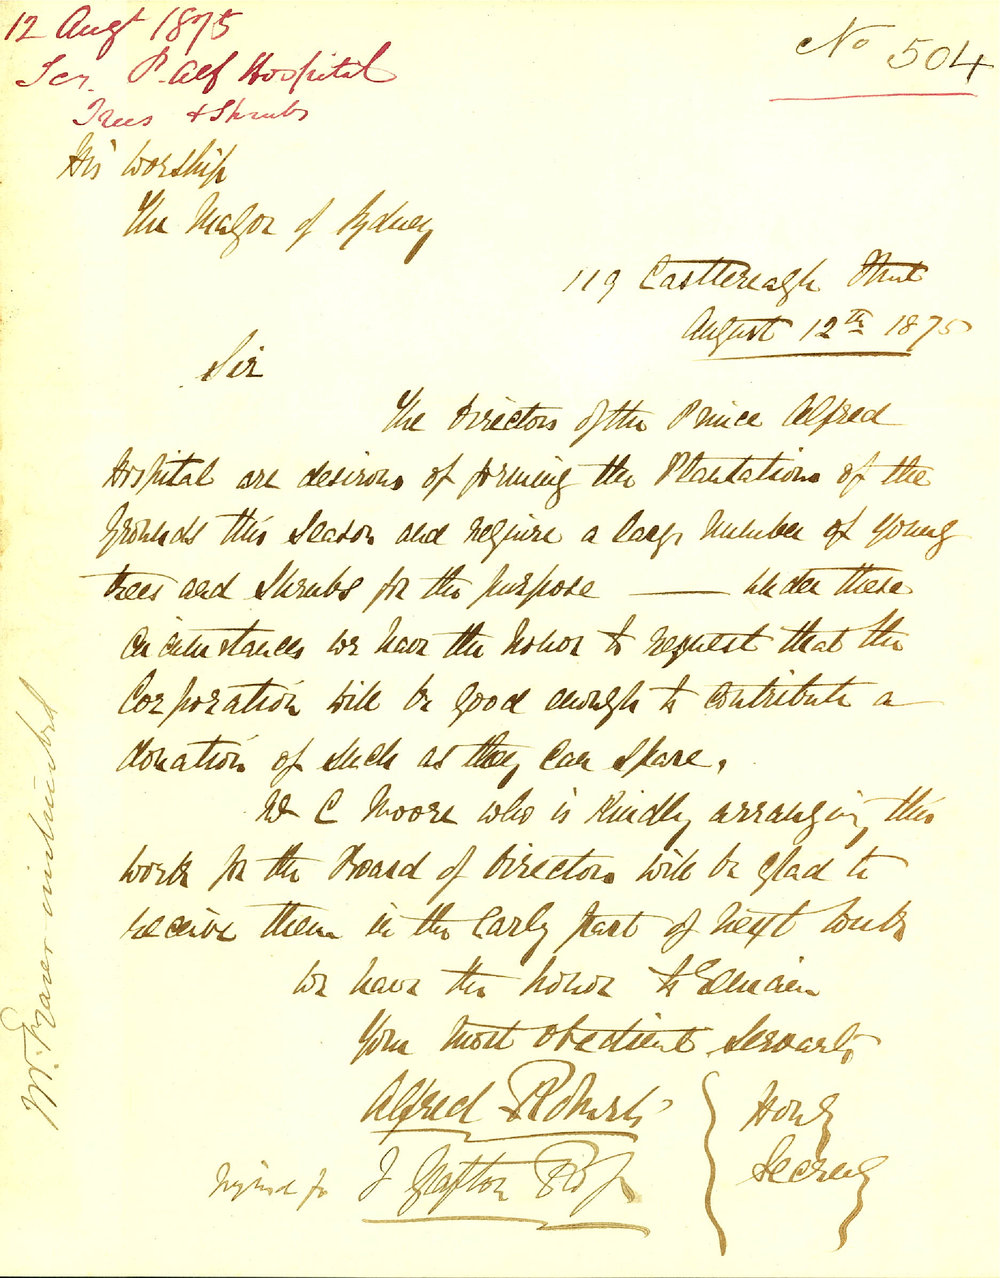 12 Augt 1875
No 504
Secr. P. Alf Hospital
Trees & Shrubs
His Worship
The Mayor of Sydney
119 Castlereagh Street
August 12th 1875
Sir
The Directors of the Prince Alfred
Hospital are desirous of forming the Plantations of the
Grounds this Season and require a large number of young
trees and Shrubs for the purpose — under these
circumstances we have the honor to request that the
Corporation will be good enough to contribute a
donation of such as they can spare.
Mr C Moore who is kindly arranging this
work for the Board of Directors will be glad to
receive them in the Early part of next week
We have the honor to Remain
Your most obedient Servants
Alfred Roberts
Hony
Secrey
signed for J Grafton Ross
Mr. Fraser instructed